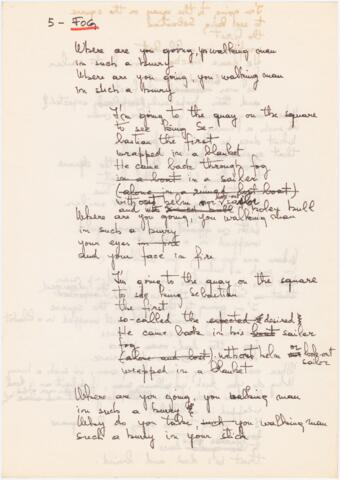 5 - FOG
Where are you going, you walking man
in such a hurry
Where are you going, you walking man
in such a hurry
I'm going to the quay on the square
to see King Se-
bastian the first
wrapped in a blanket
He came back through fog
in a boat in a sailer
(alone in a ringed lost boat)
without helm or sailor
and hull
Where are you going, you walking man
in such a hurry
your eyes in fire
and your face in fire
I'm going to the quay on the square
to see King Sebastian
the first
so-called the expected & desired
He came back in his boat sailer
fog
(alone and lost) without helm or look-out
sailor
wrapped in a blanket
Where are you going, you walking man
in such a hurry
Why do you take such you walking man
such a hurry in your stick